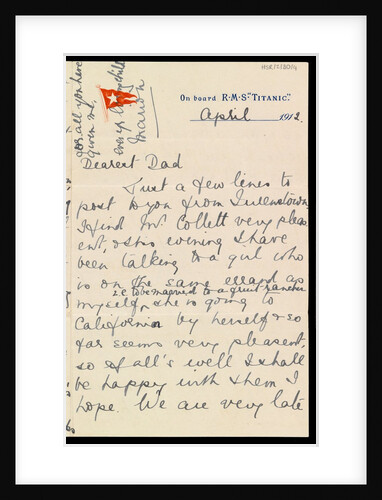 HSR/Z/BD014
On board R·M·S·"TITANIC".
April 1912.
for all you have
given me,
ever yr loving child
Marion
Dearest Dad
Just a few lines to
post to you from Queenstown
I find Mr Collett very pleas
ent, & this evening I have
been talking to a girl who
is on the same errand as
i.e. to be married to a fruit rancher
myself, she is going to
California by herself & so
far seems very pleasent,
so if all's well I shall
be happy with them I
hope. We are very late